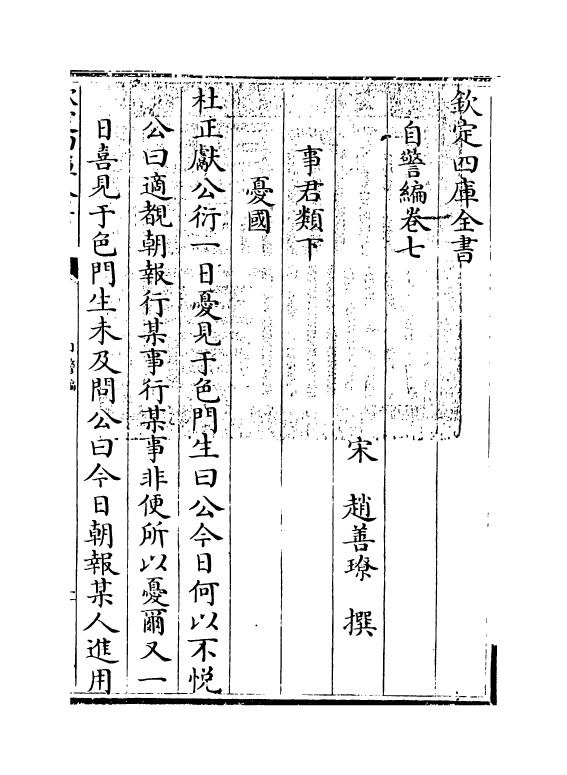 欽定四庫全書
自警編卷七
宋 趙善璙 撰
事君類下
憂國
杜正獻公衍一日憂見于色門生曰公今日何以不悦
公曰適覩朝報行某事行某事非便所以憂爾又一
日喜見于色門生未及問公曰今日朝報某人進用